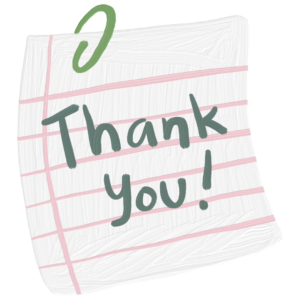 Thank
You!